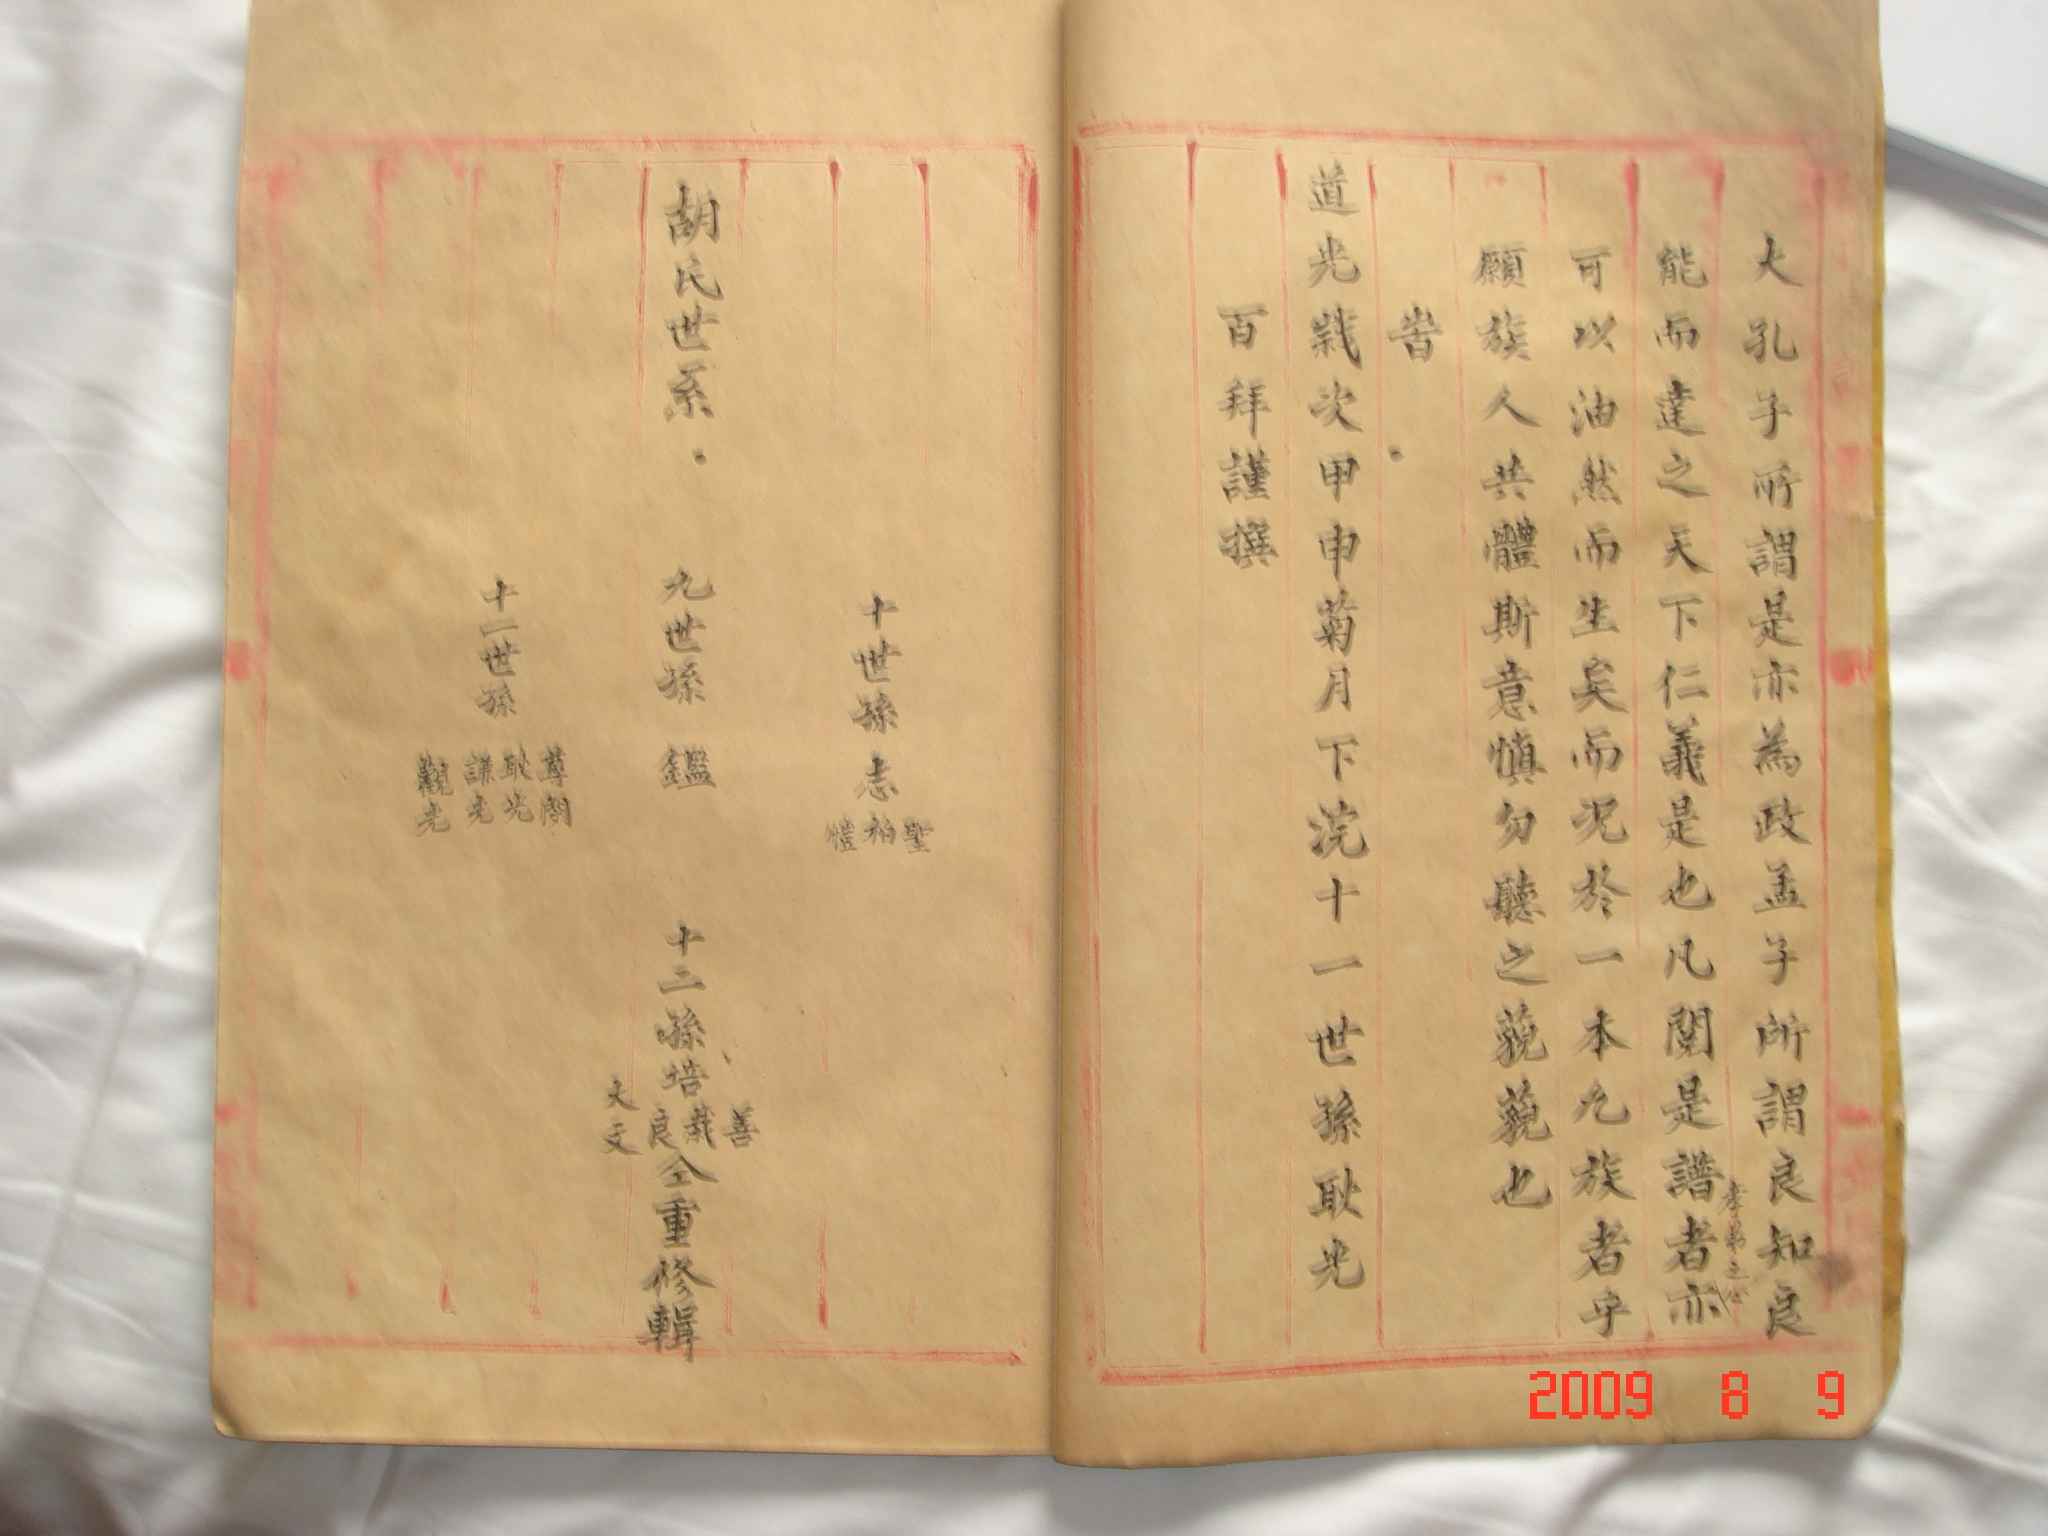 大孔子所謂是亦為政孟子所謂良知良
能而達之天下仁義是也凡閱是譜者亦
孝弟之心
可以油然而生矣而況於一本九族者乎
願族人共體斯意慎勿聽之藐藐也
旹
道光歲次甲申菊月下浣十一世孫耿光
百拜謹撰
十世孫志
聖
柏
愷
胡氏世系
九世孫 鑑
十二孫培
善
栽
良
大文
仝重修輯
十一世孫
尊閣
耿光
謙光
觀光
2009 8 9